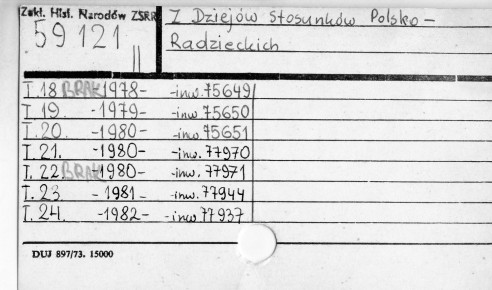 Zakł. Hist. Narodów ZSRR
59 121
II
Z Dziejów Stosunków Polsko-
Radzieckich
T. 18 BRAK 1978- -inw. 75649
T. 19. -1979- -inw. 75650
T. 20. -1980- -inw. 75651
T. 21. -1980- -inw. 77970
T. 22 BRAK -1980- -inw. 77971
T. 23 -1981- -inw. 77944
T. 24. -1982- -inw 77937
DUJ 897/73. 15000